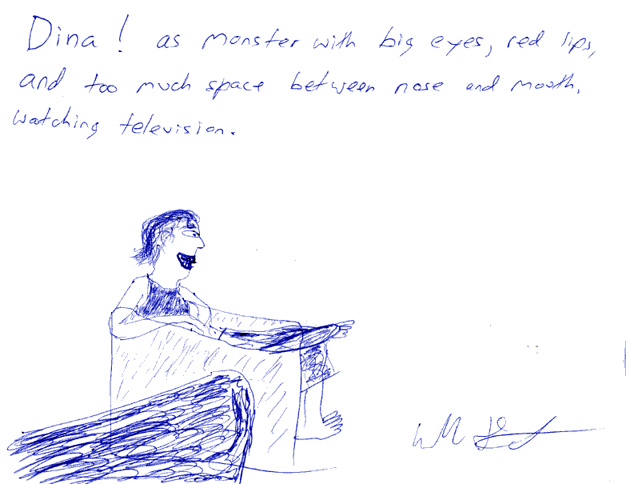 Dina! as monster with big eyes, red lips,
and too much space between nose and mouth,
watching television.